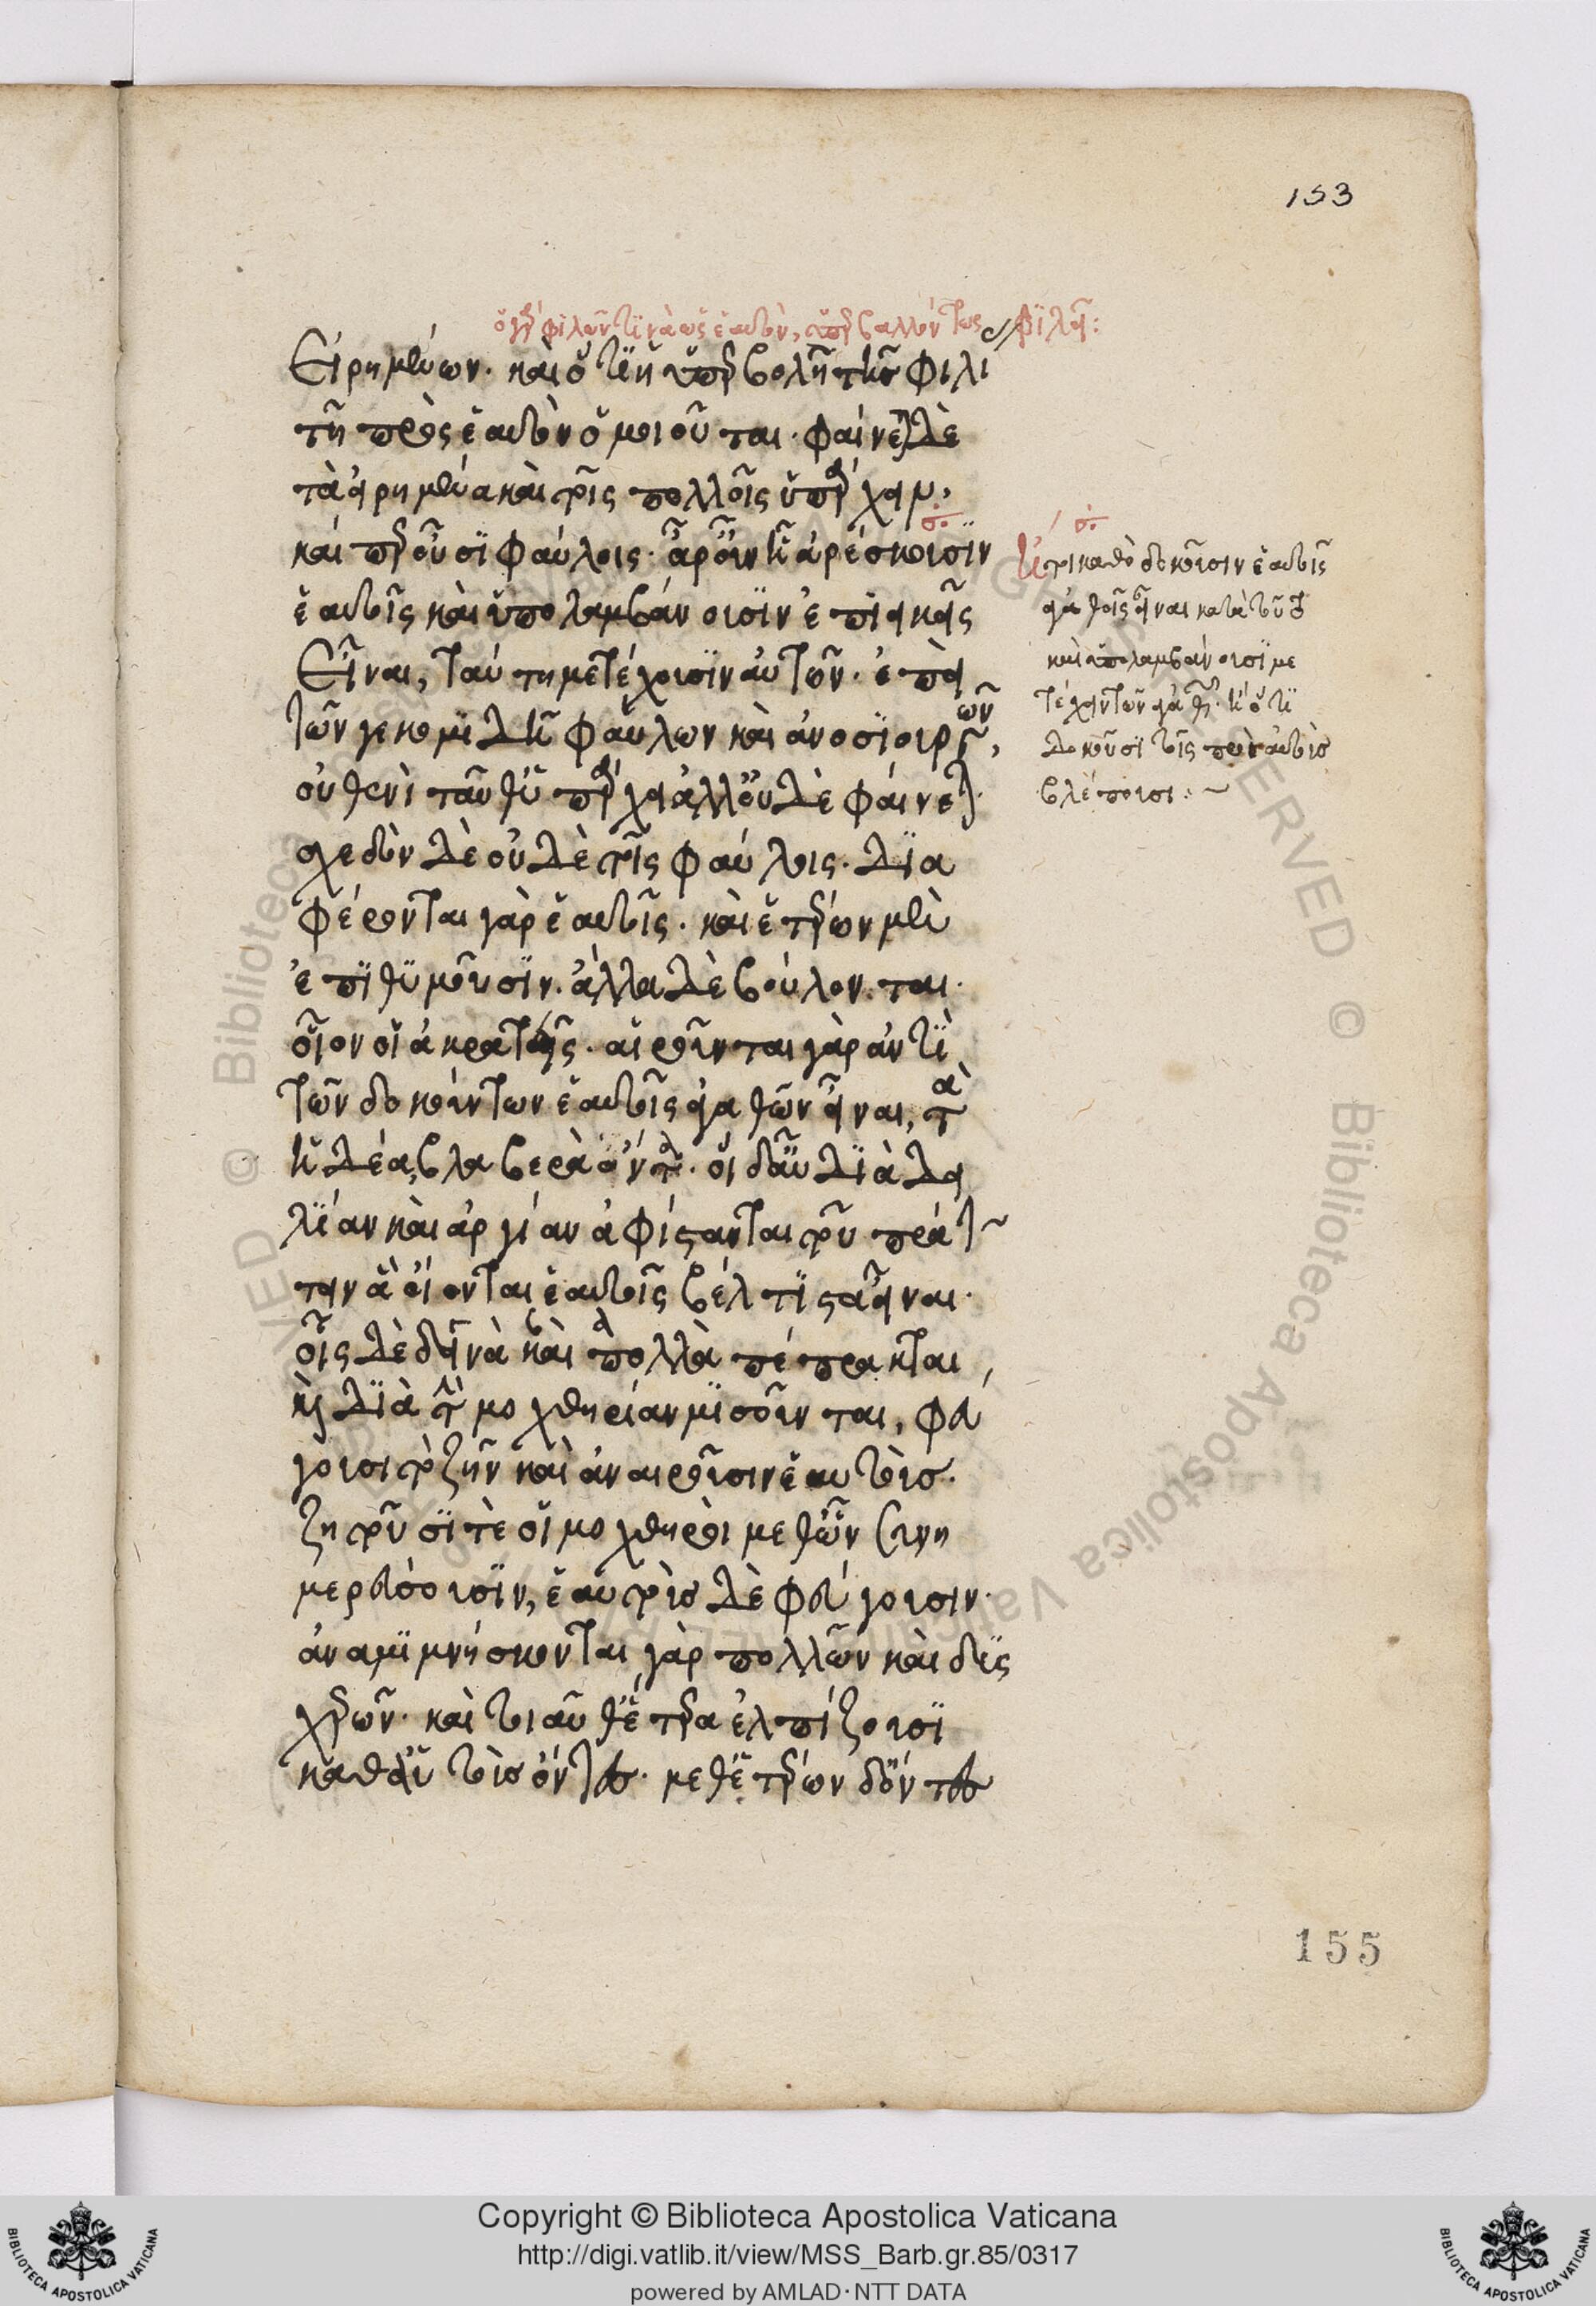 153
ὁ γὰρ φιλῶν τινὰ ὡς ἑαυτὸν, ὑπερβαλλόντως φιλεῖ:
Εἰρημένων. καὶ ὅτι ἡ ὑπερβολὴ τῆς φιλί
τῇ πρὸς ἑαυτὸν ὁμοιοῦται. φαίνεται δὲ
τὰ εἰρημένα καὶ τοῖς πολλοῖς ὑπάρχειν,
καίπερ οὖσι φαύλοις. ἆρ' οὖν ᾗ ἀρέσκουσιν
ἑαυτοῖς καὶ ὑπολαμβάνουσιν ἐπιεικεῖς
Εἶναι, ταύτῃ μετέχουσιν αὐτῶν. ἐπεὶ
τῶν γε κομιδῇ φαύλων καὶ ἀνοσιουργῶν,
οὐθενὶ ταῦθ' ὑπάρχει ἀλλ' οὐδὲ φαίνεται.
σχεδὸν δὲ οὐδὲ τοῖς φαύλοις. δια
φέρονται γὰρ ἑαυτοῖς. καὶ ἑτέρων μὲν
ἐπιθυμοῦσιν. ἄλλα δὲ βούλονται.
οἷον οἱ ἀκρατεῖς. αἱροῦνται γὰρ ἀντὶ
τῶν δοκούντων ἑαυτοῖς ἀγαθῶν εἶναι, τὰ
ἡδέα βλαβερὰ ὄντα. οἱ δ' αὖ διὰ δει
λίαν καὶ ἀργίαν ἀφίστανται τοῦ πράτ
τειν ἃ οἴονται ἑαυτοῖς βέλτιστα εἶναι.
οἷς δὲ δεινὰ καὶ πολλὰ πέπρακται,
καὶ διὰ τὴν μοχθηρίαν μισοῦνται, φεύ
γουσι τὸ ζῆν καὶ ἀναιροῦσιν ἑαυτούς.
ζητοῦσί τε οἱ μοχθηροὶ μεθ' ὧν συνη
μερεύσουσιν, ἑαυτοὺς δὲ φεύγουσιν.
ἀναμιμνήσκονται γὰρ πολλῶν καὶ δυς
χερῶν. καὶ τοιαῦθ' ἕτερα ἐλπίζουσι
καθ' αὑτοὺς ὄντες. μεθ' ἑτέρων δ' ὄντες
ἤτοι καθὸ δοκοῦσιν ἑαυτοῖς
ἀγαθοῖς εἶναι κατὰ τοῦτο
καὶ ὑπολαμβάνουσι με
τέχειν τῶν ἀγαθῶν. ἢ ὅτι
δοκοῦσι τοῖς πρὸς αὐτοὺς
βλέπουσι:~
155
Copyright © Biblioteca Apostolica Vaticana
http://digi.vatlib.it/view/MSS_Barb.gr.85/0317
powered by AMLAD·NTT DATA